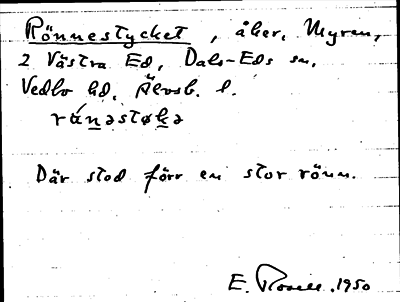 Rönnestycket, åker, Myren,
2 Västra Ed, Dals-Eds sn,
Vedbo hd, Älvsb. l.
rǻnəstøkə
Där stod förr en stor rönn.
E. Rosell. 1950